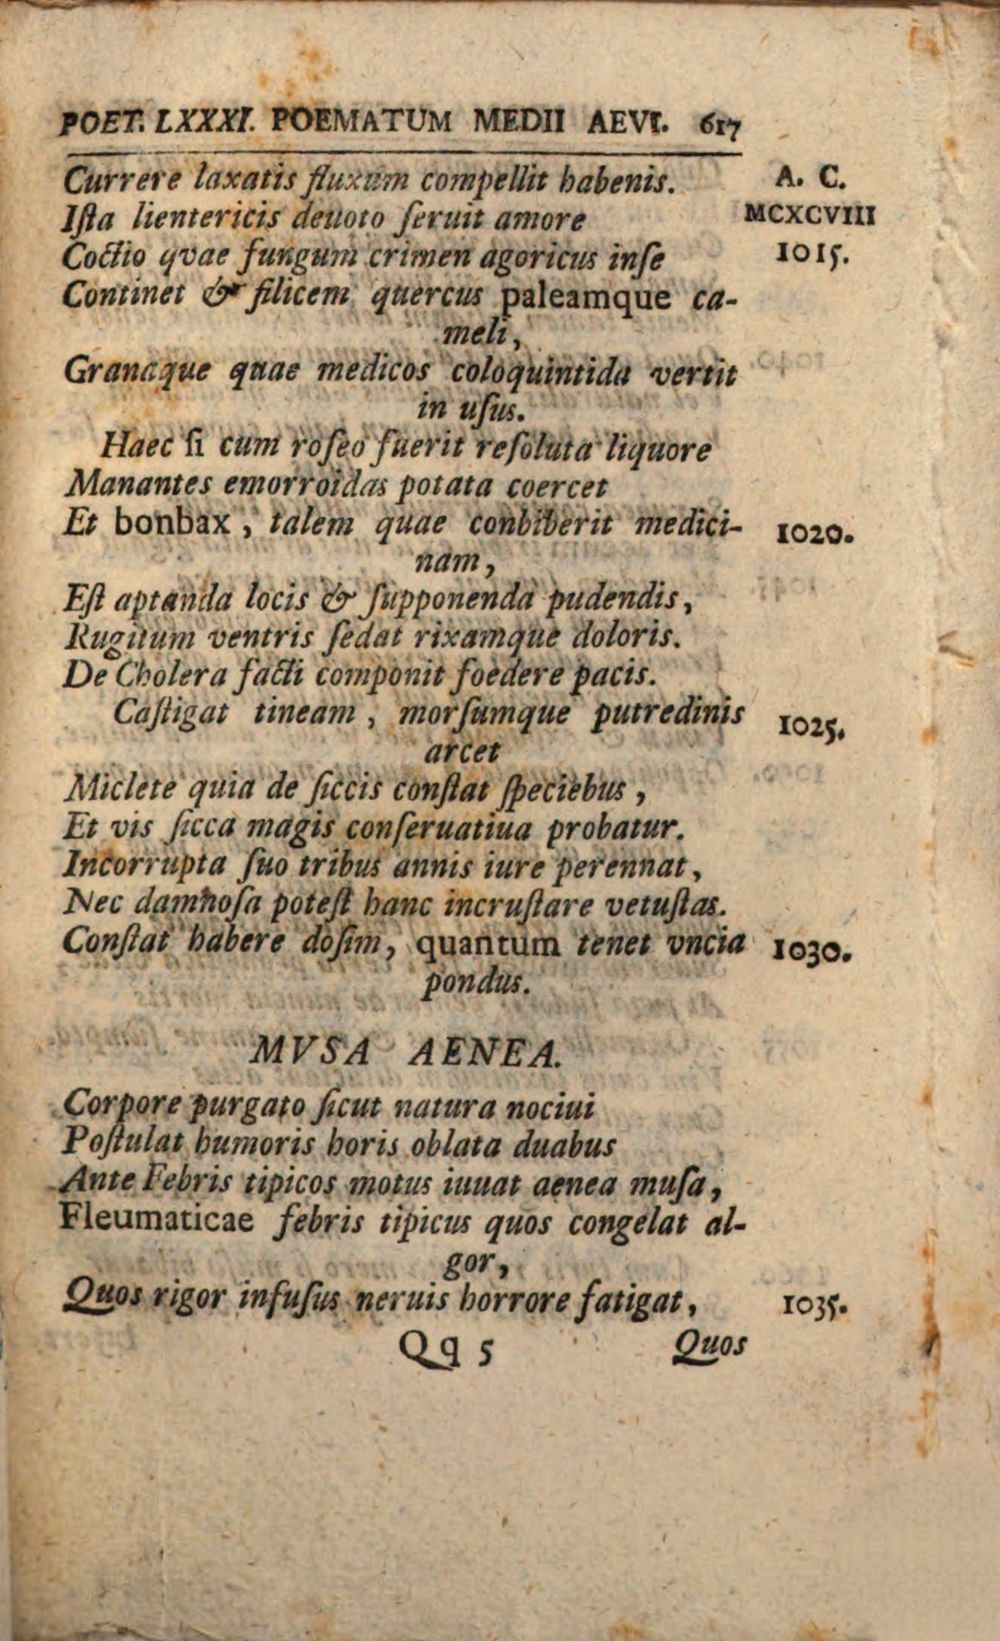 POET. LXXXI. POEMATUM MEDII AEVI. 617
Currere laxatis fluxum compellit habenis. A. C.
Iſta lientericis deuoto ſeruit amore MCXCVIII
Coctio qvae fungum crimen agoricus inſe 1015.
Continet & filicem quercus paleamque ca-
meli,
Granaque quae medicos coloquintida vertit
in uſus.
Haec ſi cum roſeo fuerit reſoluta liquore
Manantes emorroidas potata coercet
Et bonbax, talem quae conbiberit medici- 1020.
nam,
Eſt aptanda locis & ſupponenda pudendis,
Rugitum ventris ſedat rixamque doloris.
De Cholera facti componit foedere pacis.
Caſtigat tineam, morſumque putredinis 1025.
arcet
Miclete quia de ſiccis conſtat ſpeciebus,
Et vis ſicca magis conſeruatiua probatur.
Incorrupta ſuo tribus annis iure perennat,
Nec damnoſa poteſt hanc incruſtare vetuſtas.
Conſtat habere doſim, quantum tenet vncia 1030.
pondus.
MVSA AENEA.
Corpore purgato ſicut natura nociui
Poſtulat humoris horis oblata duabus
Ante Febris tipicos motus iuuat aenea muſa,
Fleumaticae febris tipicus quos congelat al-
gor,
Quos rigor infuſus neruis horrore fatigat, 1035.
Qq 5 Quos